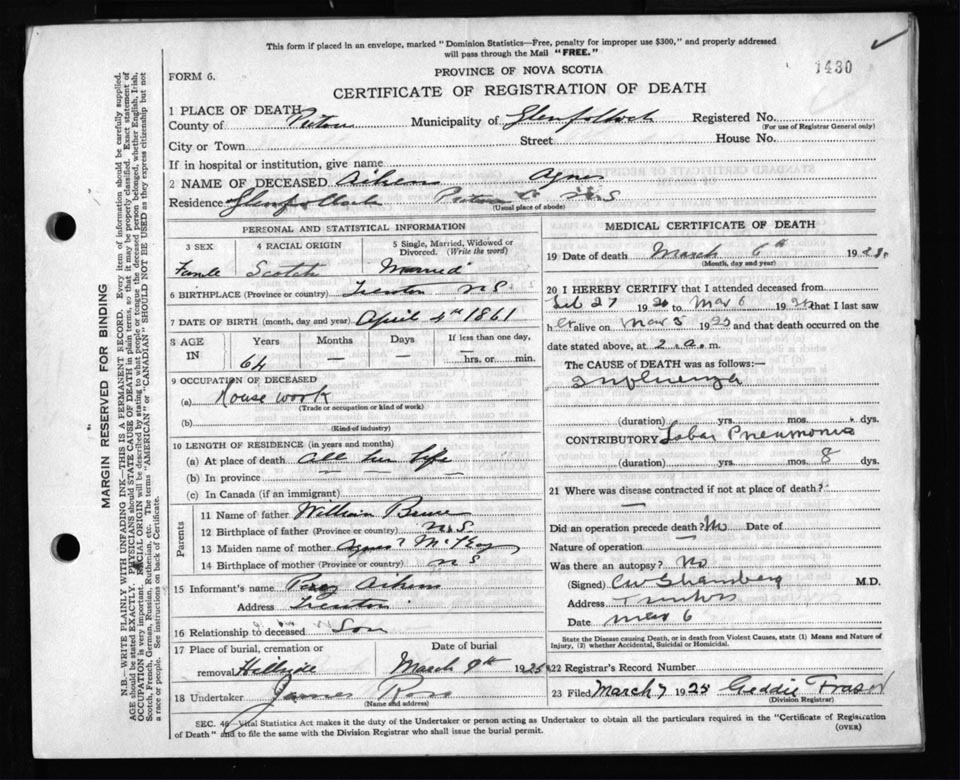 This form if placed in an envelope, marked "Dominion Statistics—Free, penalty for improper use $300," and properly addressed
will pass through the Mail "FREE."
1430
PROVINCE OF NOVA SCOTIA
FORM 6.
CERTIFICATE OF REGISTRATION OF DEATH
MARGIN RESERVED FOR BINDING
N.B.—WRITE PLAINLY WITH UNFADING INK—THIS IS A PERMANENT RECORD. Every item of information should be carefully supplied.
AGE should be stated EXACTLY. PHYSICIANS should STATE CAUSE OF DEATH in plain terms, so that it may be properly classified. Exact statement of
OCCUPATION is very important. RACIAL ORIGIN will be described by stating to what people or tongue the deceased person belonged, whether English, Irish,
Scotch, French, German, Russian, Ruthenian, etc. The terms "AMERICAN" or "CANADIAN" SHOULD NOT BE USED as they express citizenship but not
a race or people. See instructions on back of Certificate.
1 PLACE OF DEATH
County of Pictou Municipality of Glenfalloch Registered No.
(For use of Registrar General only)
City or Town Street House No.
If in hospital or institution, give name
2 NAME OF DECEASED Aikens Agnes
Residence Glenfalloch Pictou Co N S
(Usual place of abode)
PERSONAL AND STATISTICAL INFORMATION
3 SEX 4 RACIAL ORIGIN 5 Single, Married, Widowed or
Divorced. (Write the word)
Female Scotch Married
6 BIRTHPLACE (Province or country) Trenton N S
7 DATE OF BIRTH (month, day and year) April 4th 1861
8 AGE IN Years Months Days If less than one day,
64 — — hrs. or min.
9 OCCUPATION OF DECEASED
(a) House work
(Trade or occupation or kind of work)
(b)
(Kind of industry)
10 LENGTH OF RESIDENCE (in years and months)
(a) At place of death All her life
(b) In province —
(c) In Canada (if an immigrant)
Parents
11 Name of father William Bruce
12 Birthplace of father (Province or country) N S
13 Maiden name of mother Agnes? McKay
14 Birthplace of mother (Province or country) N S
15 Informant's name Percy Aikens
Address Trenton
16 Relationship to deceased Son
17 Place of burial, cremation or Date of burial
removal Hillside March 9th 1925
18 Undertaker James Ross
(Name and address)
MEDICAL CERTIFICATE OF DEATH
19 Date of death March 6th 192
(Month, day and year)
20 I HEREBY CERTIFY that I attended deceased from
Feb 27 19 to Mar 6 19 that I last saw
her alive on Mar 5 19 and that death occurred on
date stated above, at 2 a. m.
The CAUSE OF DEATH was as follows:—
Influenza
(duration) yrs. mos. 8 dys.
CONTRIBUTORY Lobar Pneumonia
(duration) yrs. mos. 8 dys.
21 Where was disease contracted if not at place of death?
—
Did an operation precede death? No Date of
Nature of operation
Was there an autopsy? No
(Signed) M.D.
Address
Date Mar 6
State the Disease causing Death, or in death from Violent Causes, state (1) Means and Nature of
Injury, (2) whether Accidental, Suicidal or Homicidal.
22 Registrar's Record Number
23 Filed March 7 1925 Geddie Fraser
(Division Registrar)
SEC. 46—Vital Statistics Act makes it the duty of the Undertaker or person acting as Undertaker to obtain all the particulars required in the "Certificate of Registration
of Death" and to file the same with the Division Registrar who shall issue the burial permit.
(OVER)